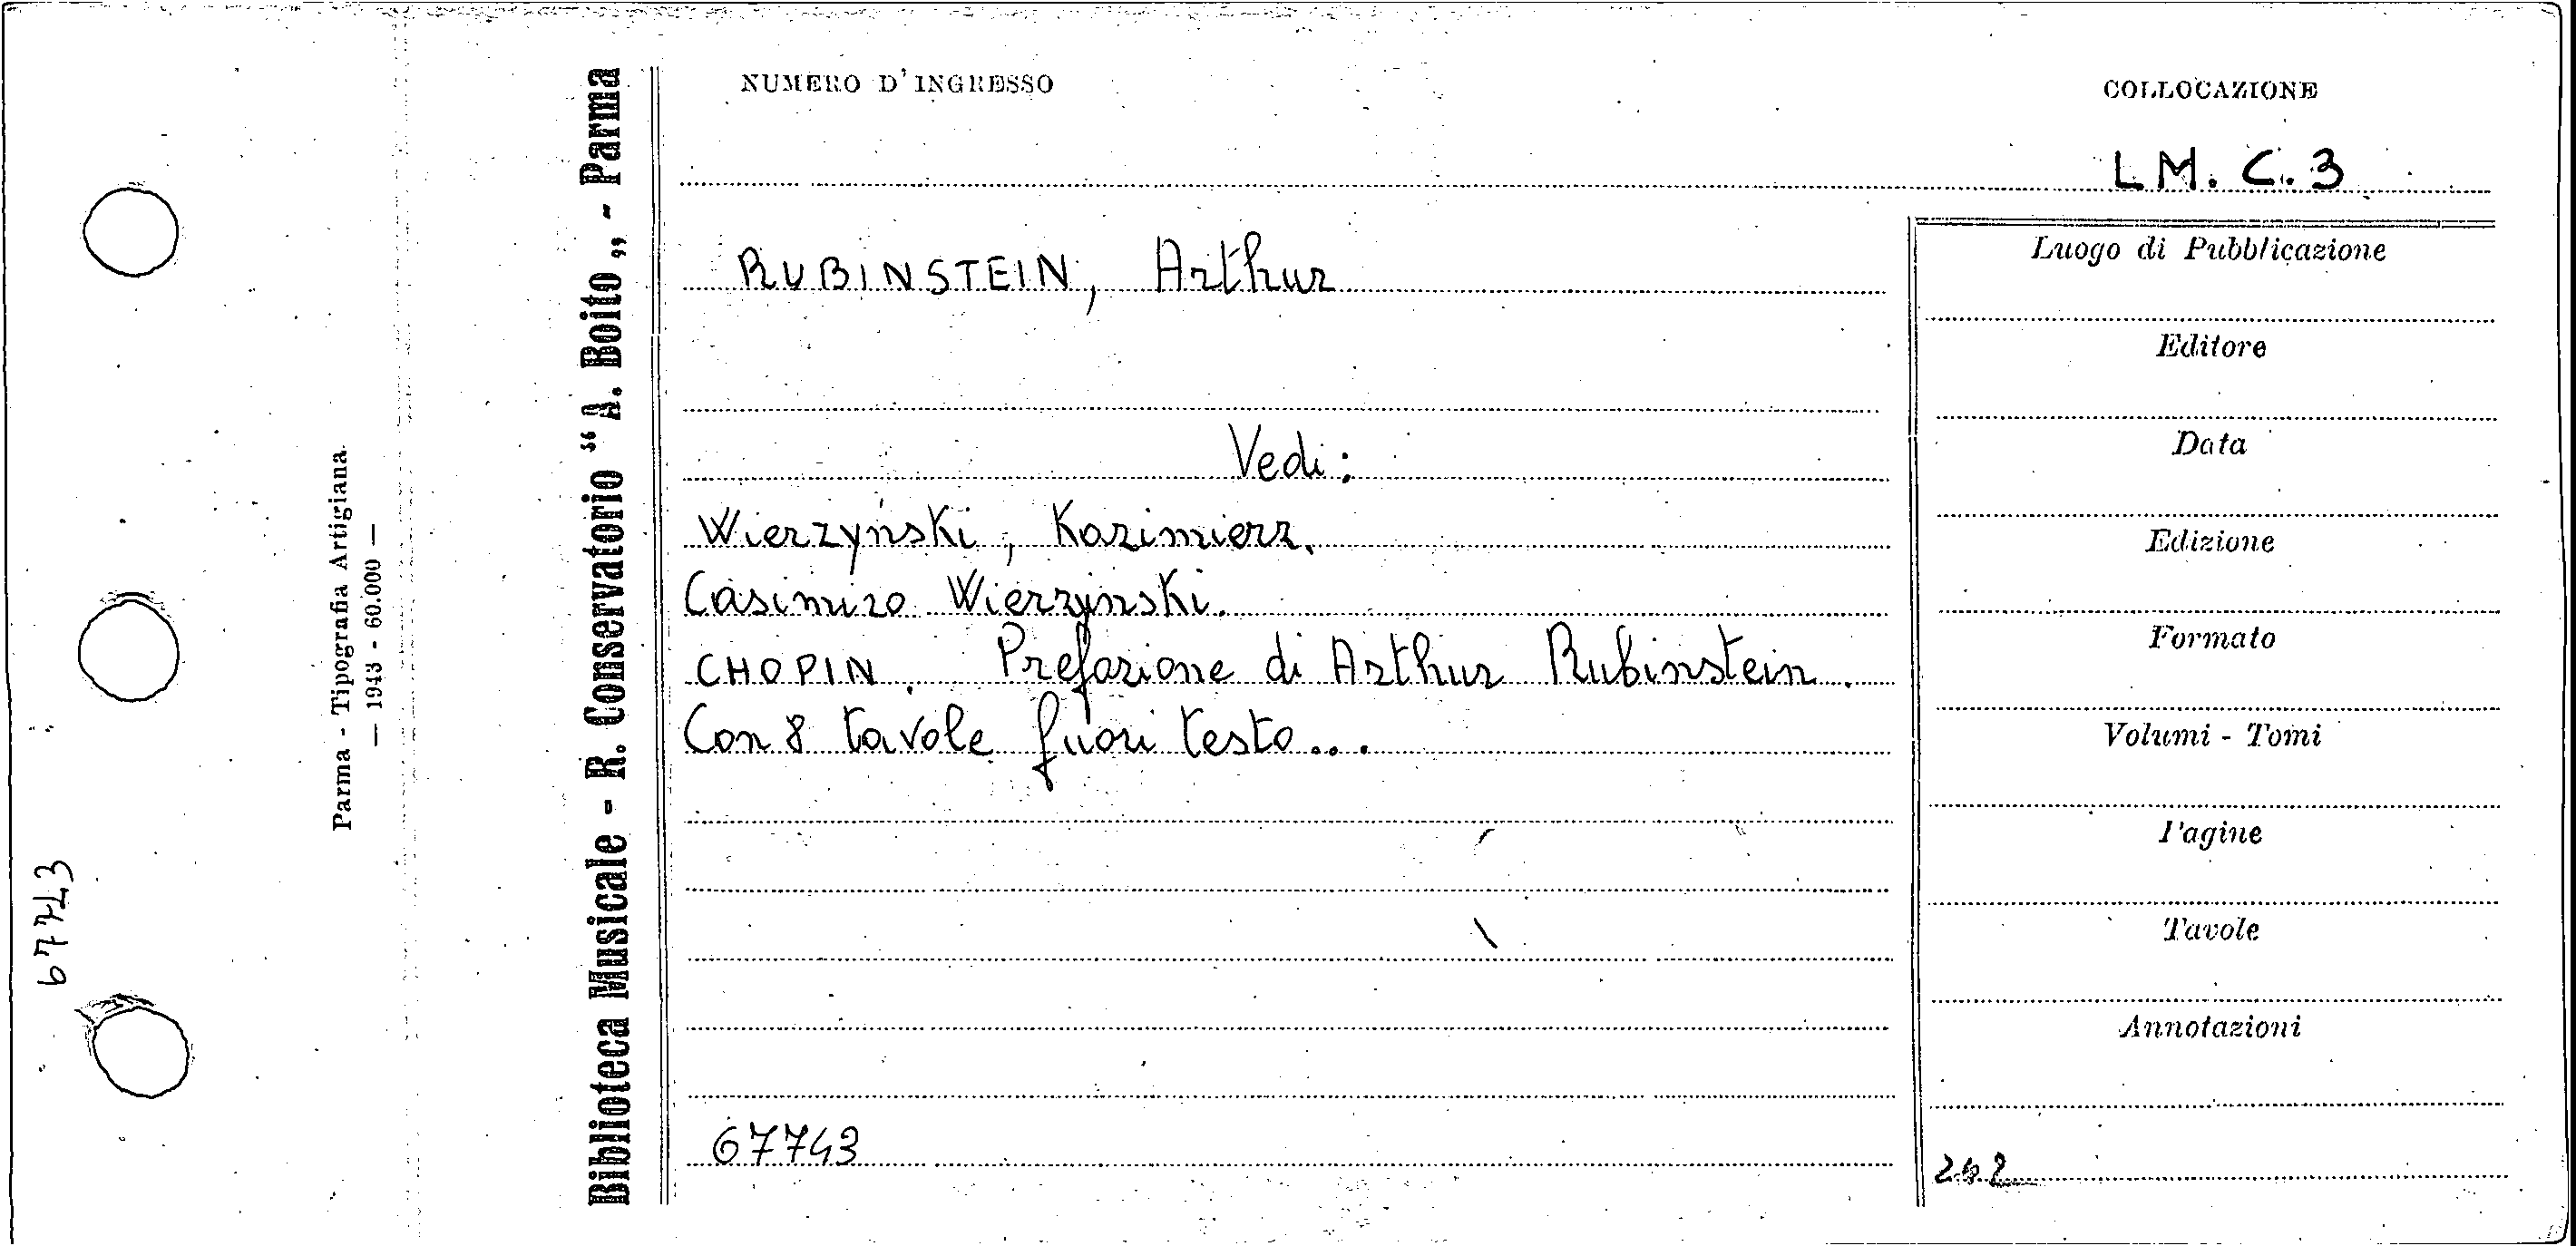 NUMERO D'INGRESSO
COLLOCAZIONE
LM. C. 3
RUBINSTEIN, Arthur
Vedi:
Wierzyński, Kazimierz.
Casimiro Wierzyński.
CHOPIN. Prefazione di Arthur Rubinstein.
Con 8 tavole fuori testo...
67743
Luogo di Pubblicazione
Editore
Data
Edizione
Formato
Volumi - Tomi
Pagine
Tavole
Annotazioni
Biblioteca Musicale - R. Conservatorio “A. Boito„ - Parma
Parma - Tipografia Artigiana
— 1943 - 60.000 —
67743